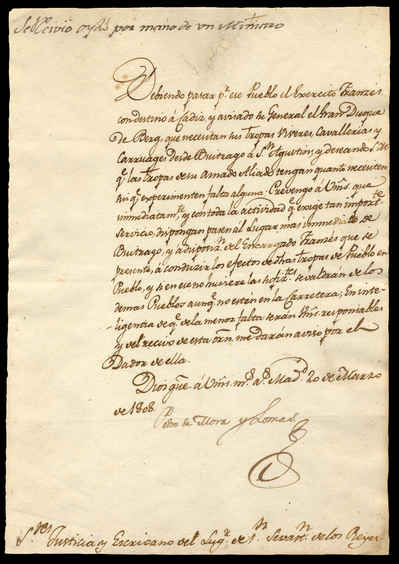 Se recivio oy dia por mano de un Ministro
Debiendo pasar pr. ese Pueblo el Exercito Francés
con destino á Cadiz y avisado su General el Gran Duque
de Berg, que necesitan sus Tropas Viveres, Cavallerias y
Carruages desde Buitrago á Sn. Agustin, y deseando S.M.
qe. las Tropas de su Amado Aliado tengan quanto necesiten
sin qe. experimenten falta alguna: Prevengo á Vms. que
inmediatamte. y con toda la actividad qe. exige tan importte.
servicio, dispongan pasen al Lugar mas inmediato de
Buitrago, y a disposn. del Encargado Francés que se
presente, á conducir los efectos de dhas Tropas de Pueblo en
Pueblo, y si en ese no huviere las sufiztes. se valdran de los
demas Pueblos aunqe. no esten en la Carretera; En inte-
ligencia de qe. de la menor falta seran Vms. responsables
y del recivo de esta orn. me darán aviso por el
Dador de ella.
Dios gue. á Vms. ms. as. Madd. 20 de Marzo
de 1808.
de Mora y Lomas
Sres. Justicia y Escrivano del Lugr. de Sn. Sevastn. de los Reyes